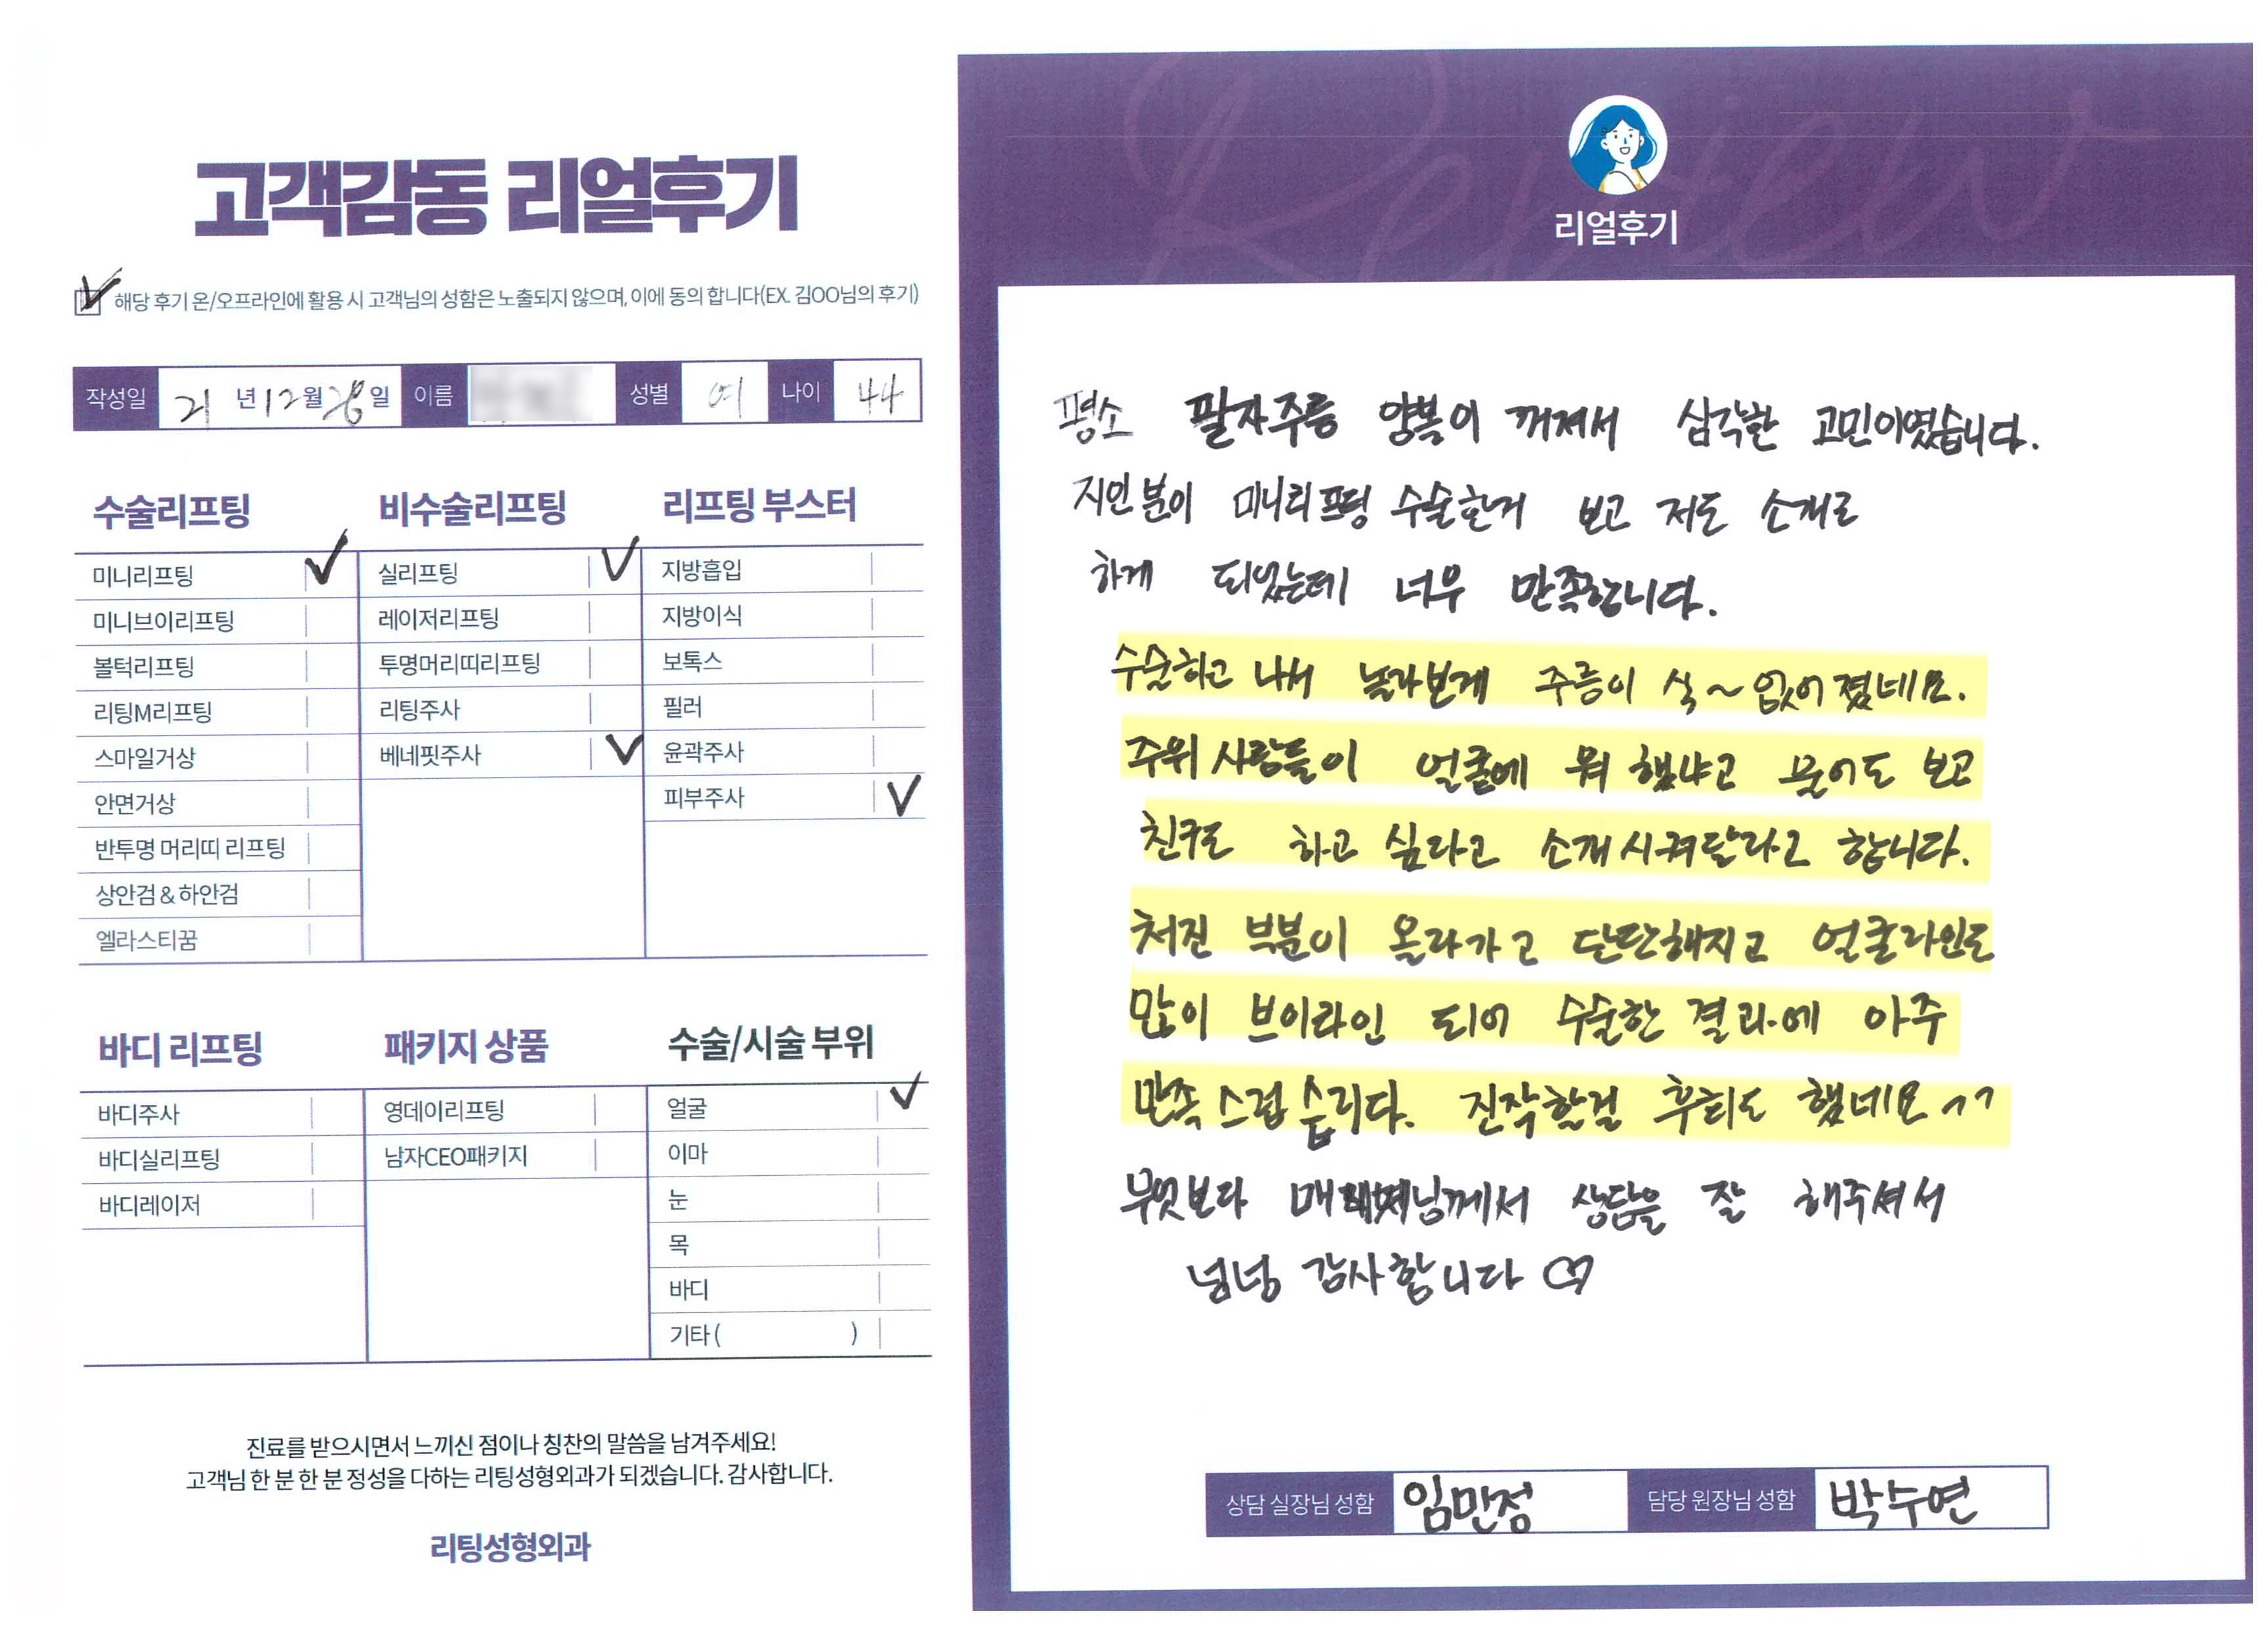 고객감동 리얼후기
해당 후기 온/오프라인에 활용 시 고객님의 성함은 노출되지 않으며, 이에 동의 합니다(EX. 김OO님의 후기)
작성일 21 년 12 월 28 일 이름 성별 여 나이 44
수술리프팅
미니리프팅 ✓
미니브이리프팅
볼턱리프팅
리팅M리프팅
스마일거상
안면거상
반투명 머리띠 리프팅
상안검 & 하안검
엘라스티꿈
비수술리프팅
실리프팅 ✓
레이저리프팅
투명머리띠리프팅
리팅주사
베네핏주사 ✓
리프팅 부스터
지방흡입
지방이식
보톡스
필러
윤곽주사
피부주사 ✓
바디 리프팅
바디주사
바디실리프팅
바디레이저
패키지 상품
영데이리프팅
남자CEO패키지
수술/시술 부위
얼굴 ✓
이마
눈
목
바디
기타 ( )
진료를 받으시면서 느끼신 점이나 칭찬의 말씀을 남겨주세요!
고객님 한 분 한 분 정성을 다하는 리팅성형외과가 되겠습니다. 감사합니다.
리팅성형외과
Review
리얼후기
평소 팔자주름 양볼이 꺼져서 심각한 고민이였습니다.
지인분이 미니리프팅 수술한거 보고 저도 소개로
하게 되었는데 너무 만족합니다.
수술하고 나서 놀라보게 주름이 싹~ 없어졌네요.
주위 사람들이 얼굴에 뭐 했냐고 물어도 보고
친구도 하고 싶다고 소개시켜달라고 합니다.
처진 부분이 올라가고 단단해지고 얼굴라인도
많이 브이라인 되어 수술한 결과에 아주
만족스럽습니다. 진작할걸 후회도 했네요^^
무엇보다 상담을 잘 해주셔서
넘넘 감사합니다 ♡
상담 실장님 성함 임만정 담당 원장님 성함 박수연